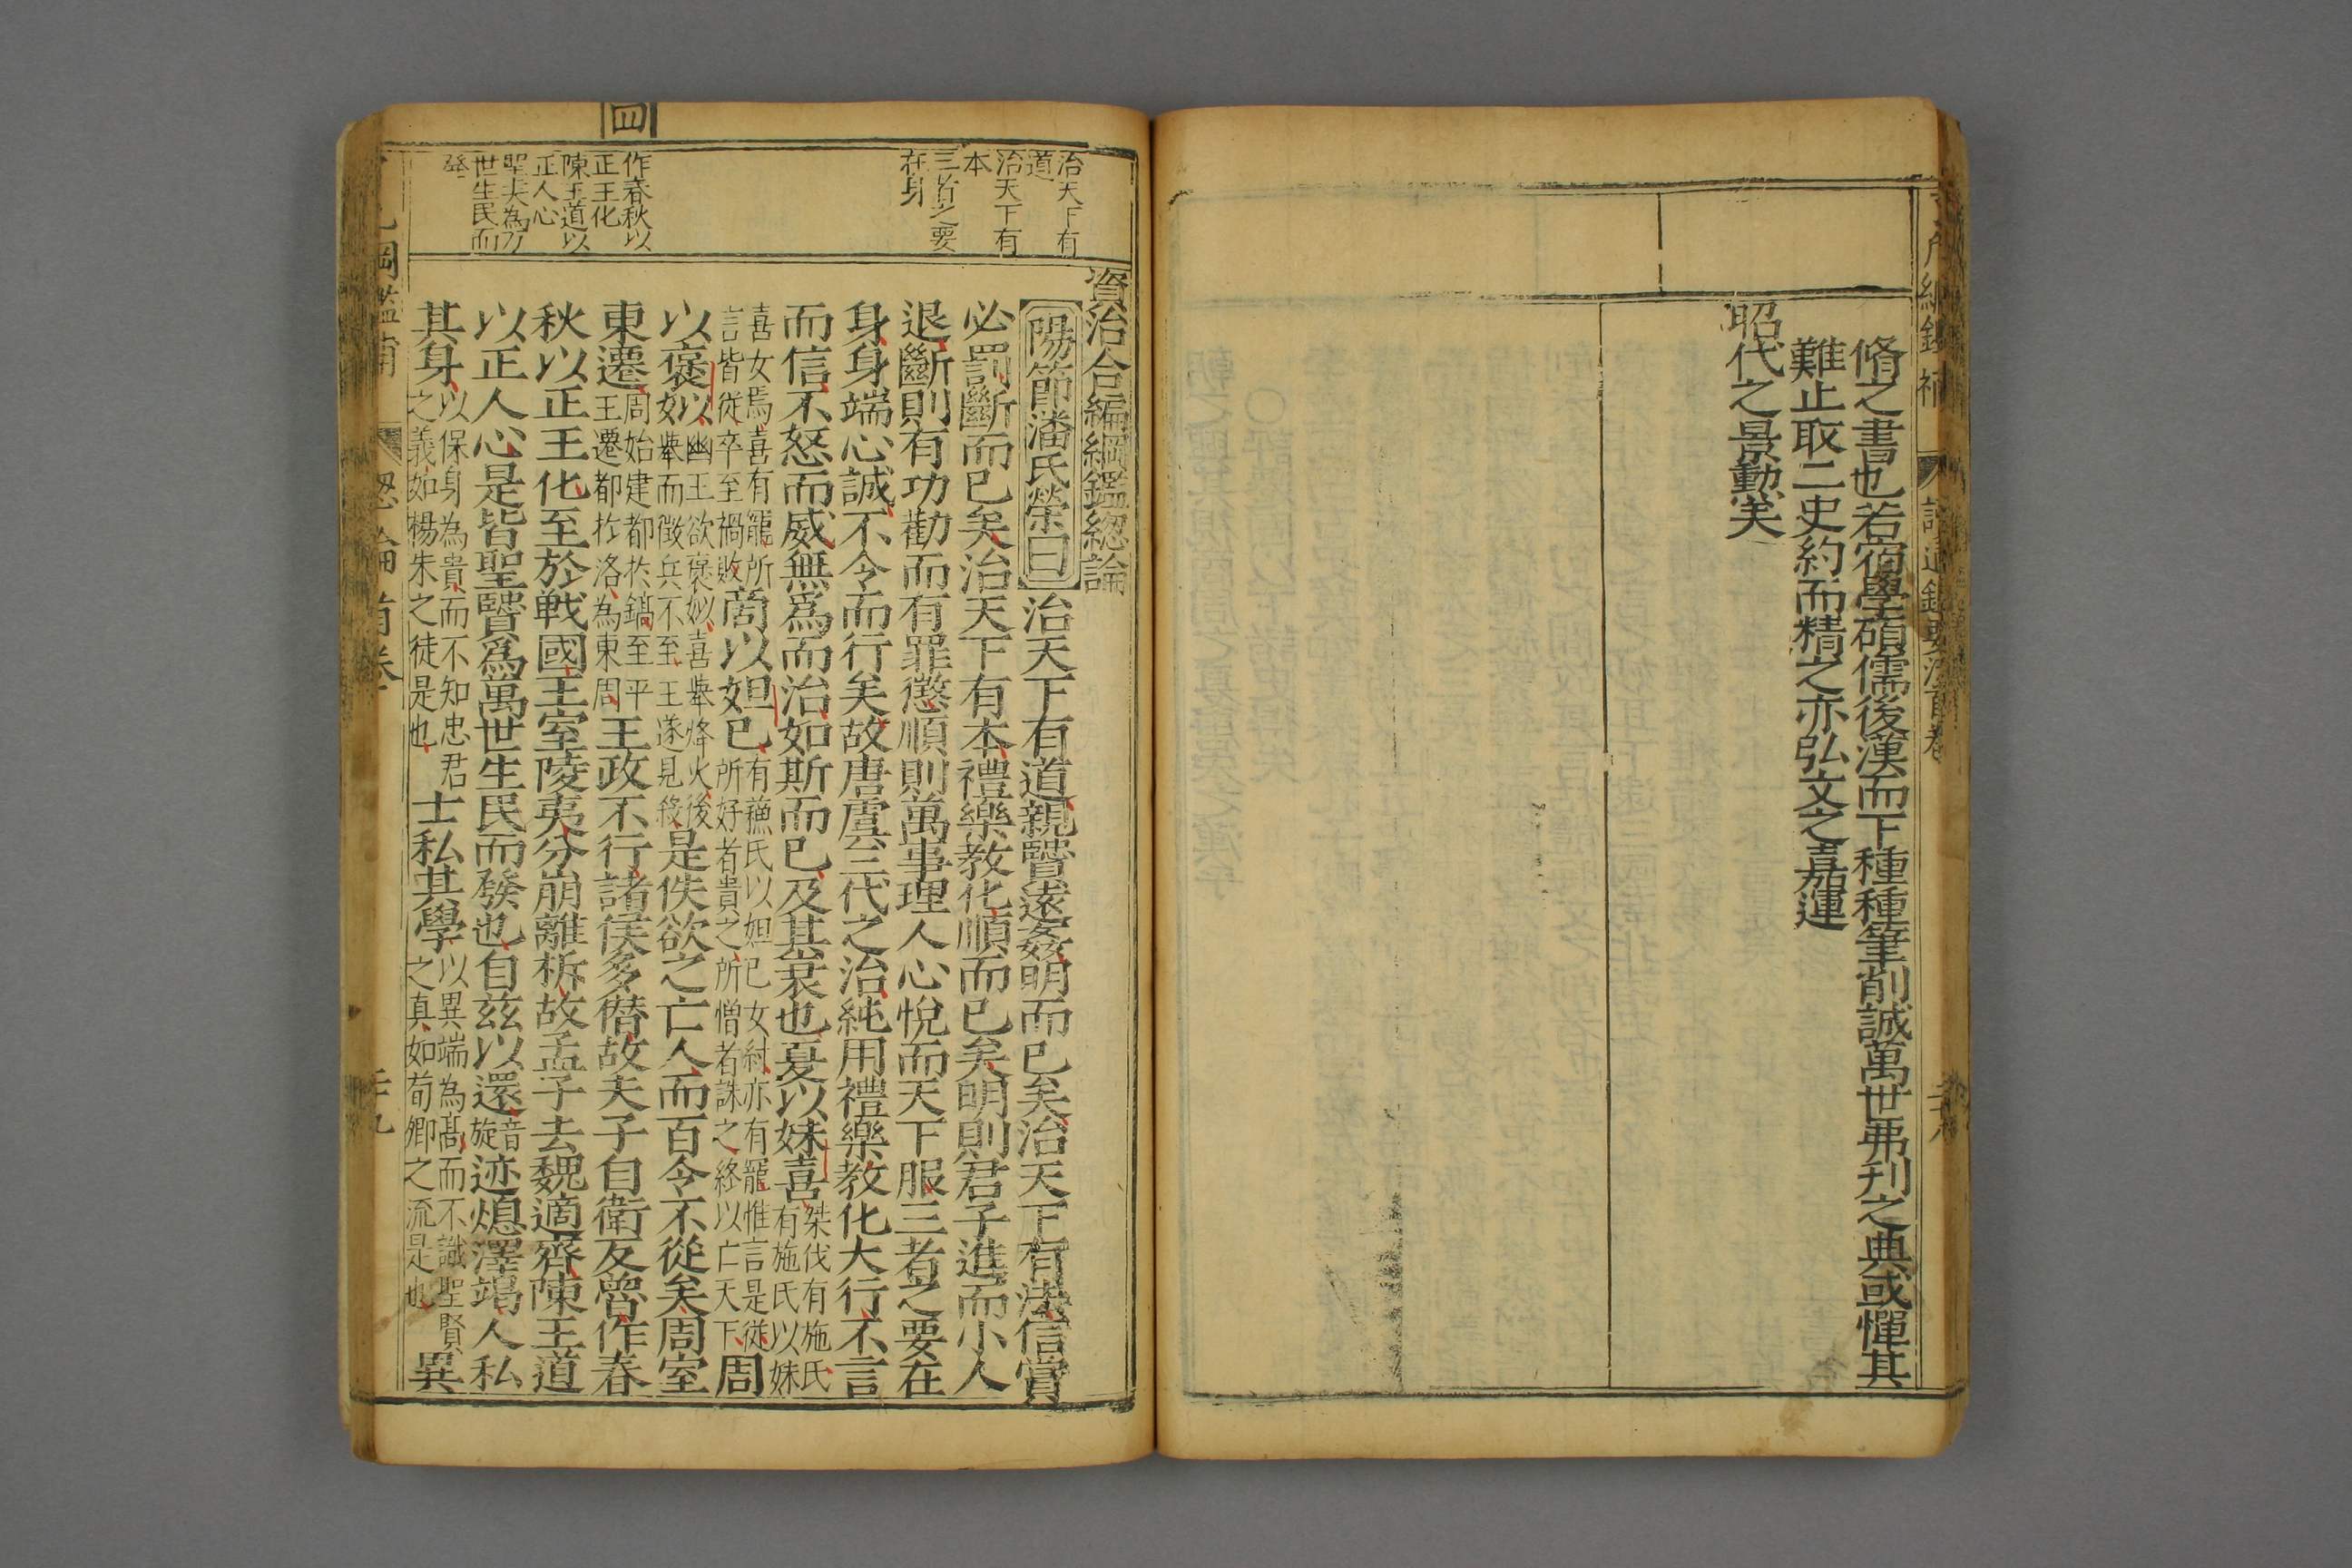 脩之書也若宿學碩儒後漢而下種種筆削誠萬世弗刋之典或憚其
難止取二史約而精之亦弘文之嘉運
昭代之景勳矣
治天下有
道
治天下有
本
三者之要
在身
作春秋以
正王化
陳王道以
正人心
聖夫為万
世生民而
發
資治合編綱鑑緫論
陽節潘氏榮曰治天下有道親賢遠姦明而已矣治天下有法信賞
必罰斷而已矣治天下有本禮樂教化順而已矣明則君子進而小人
退斷則有功勸而有罪懲順則萬事理人心悅而天下服三者之要在
身身端心誠不令而行矣故唐虞三代之治純用禮樂教化大行不言
而信不怒而威無爲而治如斯而已及其衰也夏以妹喜桀伐有施氏有施氏以妹
喜女焉喜有寵所言皆從卒至禍敗商以妲己有蘓氏以妲己女紂亦有寵惟言是從所好者貴之所憎者誅之終以亡天下周
以褒姒幽王欲褒姒喜舉烽火後如舉而徵兵不至王遂見殺是佚欲之亡人而百令不從矣周室
東遷周始建都於鎬至平王遷都於洛為東周王政不行諸侯多僣故夫子自衛反魯作春
秋以正王化至於戦國王室陵夷分崩離柝故孟子去魏適齊陳王道
以正人心是皆聖賢爲萬世生民而發也自兹以還音旋迹熄澤竭人私
其身以保身為貴而不知忠君之義如楊朱之徒是也士私其學以異端為髙而不識聖賢之真如荀卿之流是也異